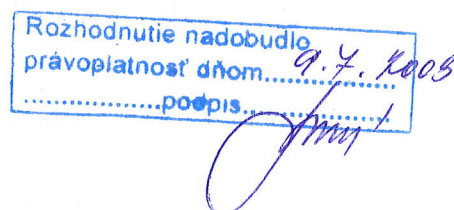 Rozhodnutie nadobudlo
právoplatnosť dňom....9.7.2003
..................podpis..................